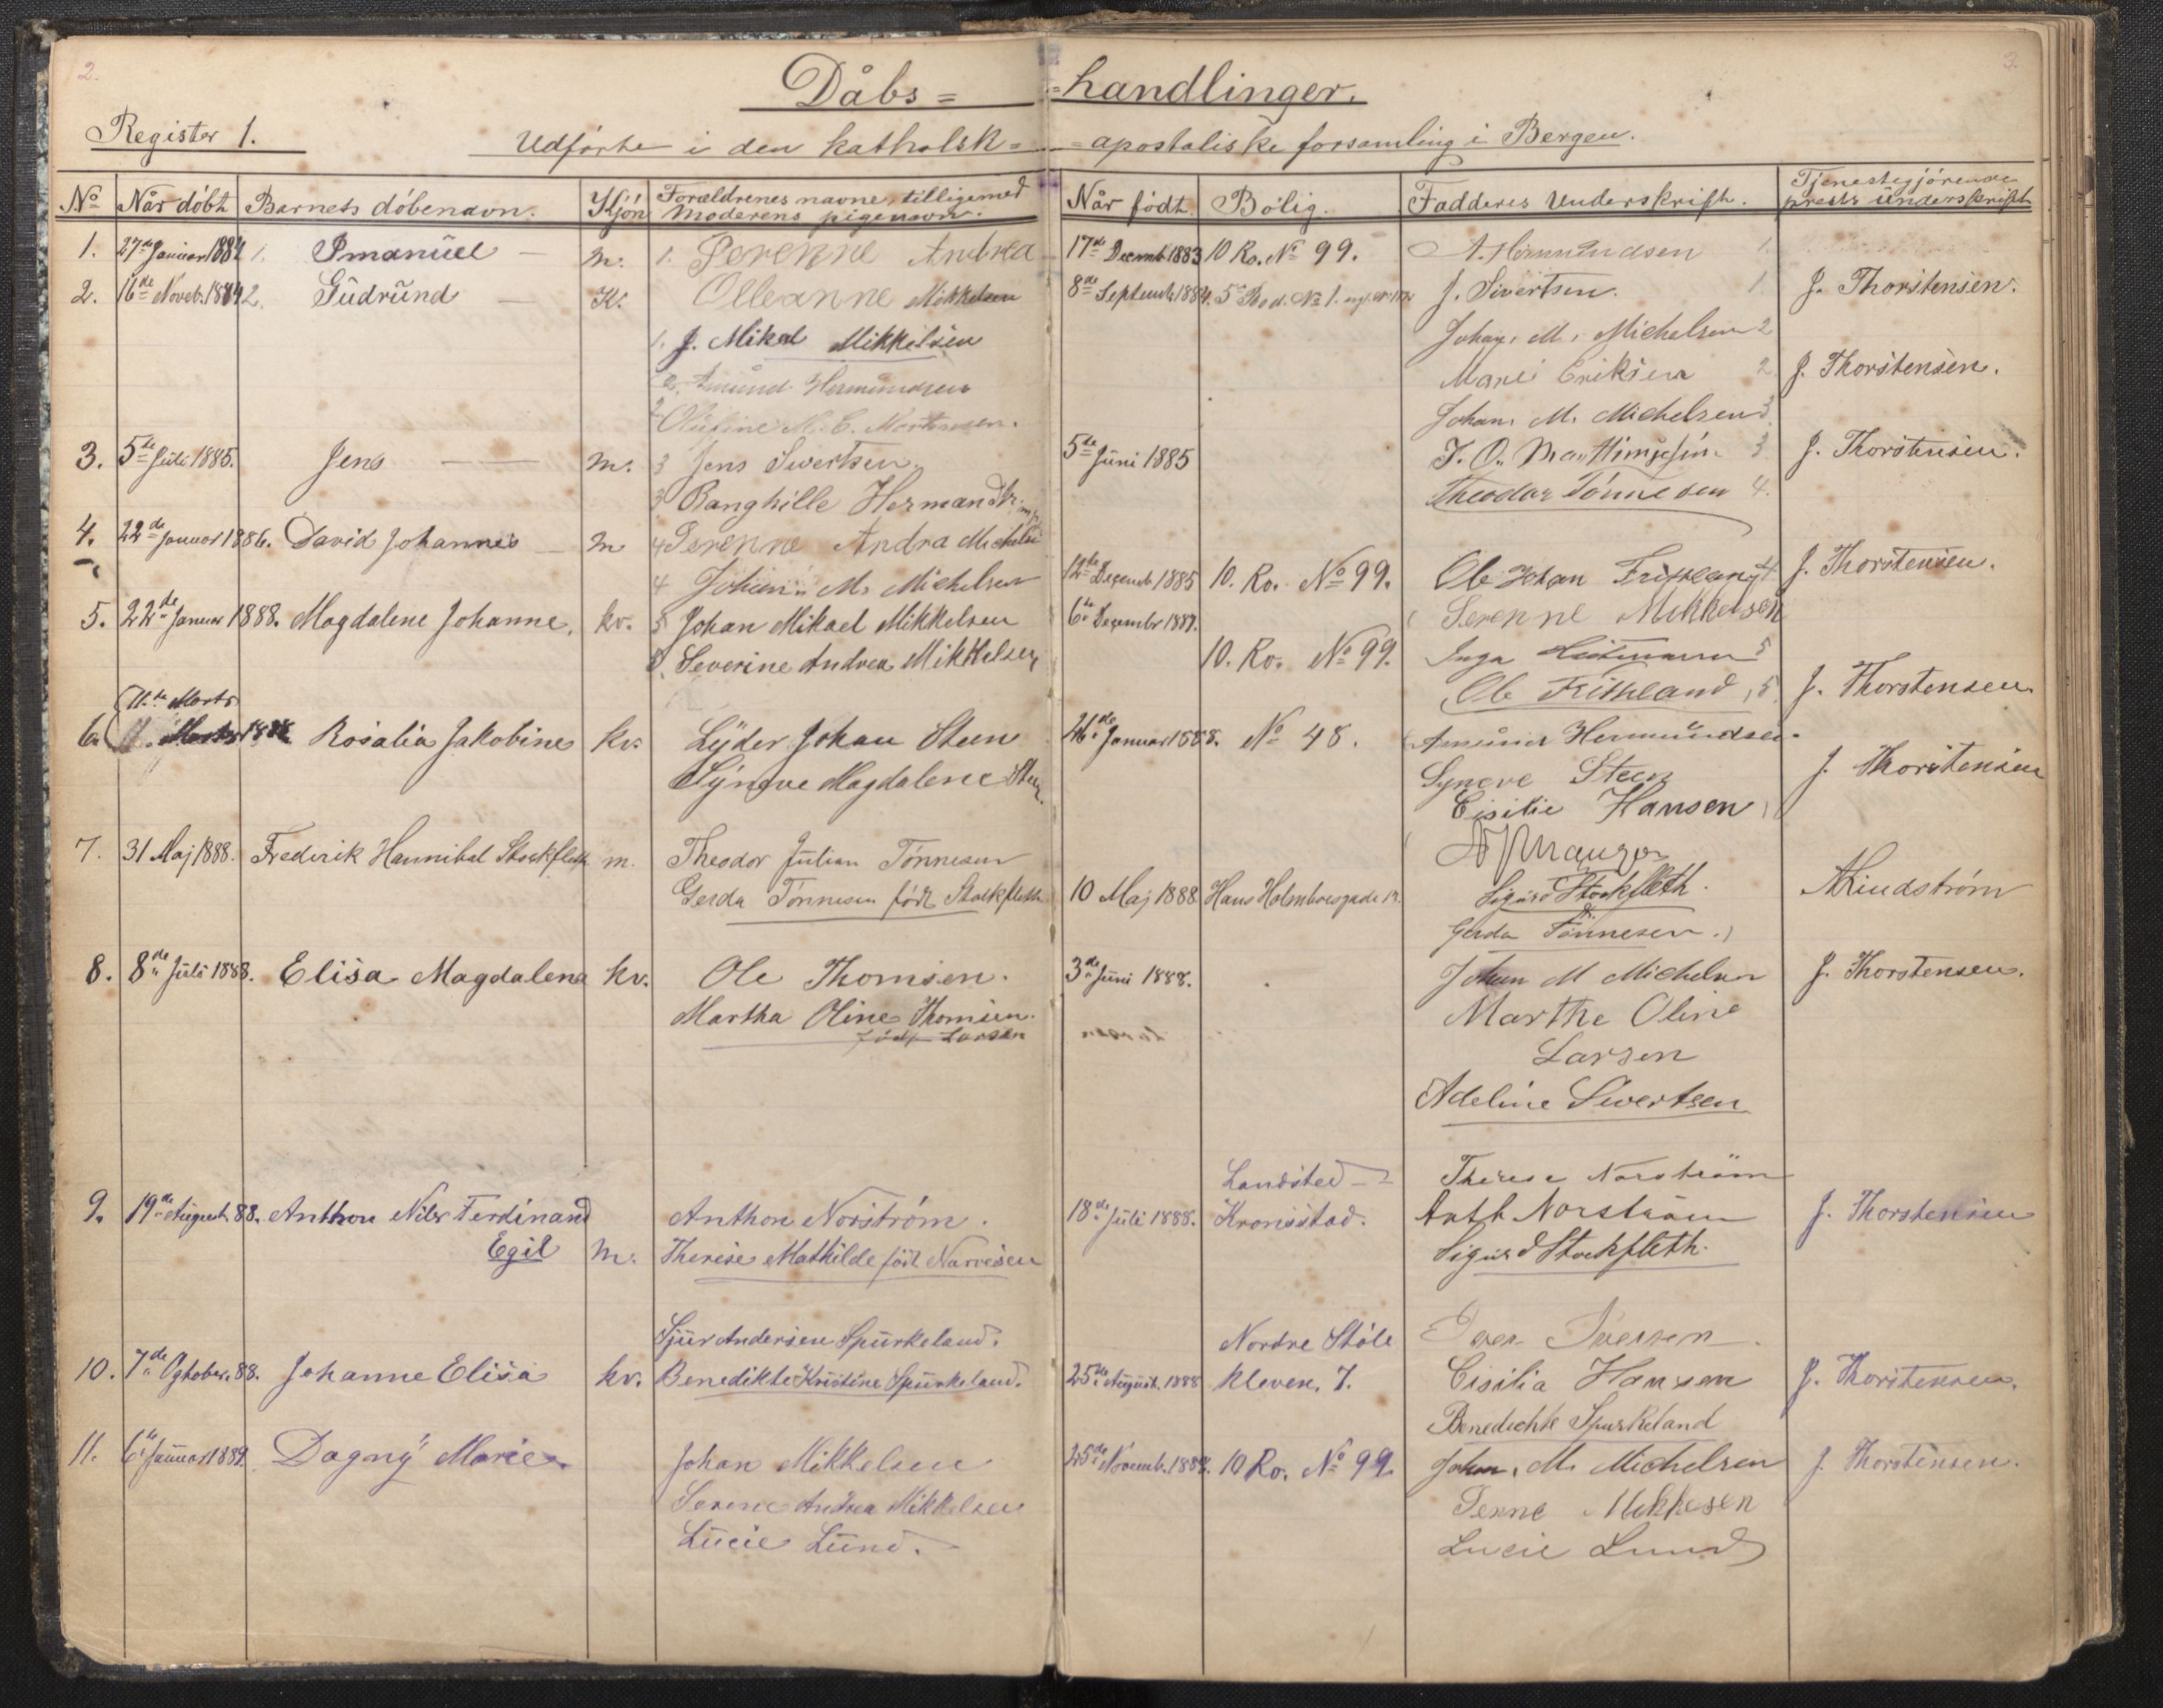 2.
3.
Dåbs= =handlinger.
Register 1.
Udførte i den katholsk= =apostoliske forsamling i Bergen.
No Når döbt Barnets döbenavn. Kjön Forældrenes navne, tilligemed Moderens pigenavn. Når födt. Bolig. Fadderes Underskrift. Tjenestegjörende prests underskrift
1. 27de Januar 1884 1. Imanuel — m. 1. Serenne Andrea 17de Decemb. 1883 10 Ro. No 99. A. Hermundsen 1.
2. 16de Noveb. 1884 2. Gudrund — K. Olleanne Mikkelsen 8de Septemb. 1884. 5te Rod. No 1. J. Sivertsen. 1 J. Thorstensen.
1. J. Mikal Mikkelsen Johan. M. Michelsen 2
2. Amund Hermundsen Marie Eriksen 2 J. Thorstensen.
2 M. C. Mortensen. Johan. M. Michelsen 3
3. 5de Juli 1885. Jens — m. 3 Jens Sivertsen. 5de Juni 1885 3 J. Thorstensen.
3 Ranghille Theodor Tönnesen 4.
4. 22de Januar 1886. David Johannes — m 4 Serenne Andra 12te Decemb. 1885 10. Ro. No 99. Ole Johan 4 J. Thorstensen.
4 Johan M. Michelsen
5. 22de Januar 1888. Magdalene Johanne. kv. 5 Johan Mikael Mikkelsen 6te Decembr 1887. Serenne Mikkelsen
5. Severine Andrea Mikkelsen 10. Ro. No 99. Inga 5
Ole 5 J. Thorstensen
11te Marts
6. Rosalia Jakobine kv. Lyder Johan Steen 26de Januar 1888. No 48. Amund Hermundsen.
Syneve Magdalene Steen. Syneve Steen J. Thorstensen
Cisilie Hansen
7. 31 Maj 1888. Frederik Hannibal Stockfleth m. Theodor Julian Tönnesen
Gerda Tönnesen födt Stockfleth 10 Maj 1888 Hans Holmboesgade Sigurd Stockfleth. A Lindström
Gerda Tönnesen.
8. 8de Juli 1888. Elisa Magdalena kv. Ole Thomsen. 3de Juni 1888. Johan M Michelsen J. Thorstensen.
Martha Oline Thomsen. Marthe Oline
födt Larsen Larsen
Adeline Sivertsen
Landsted Therese Norström
9. 19de August 88. Anthon Nils Ferdinand Anthon Norström. 18de Juli 1888. Kronstad. Anth Norström J. Thorstensen
Egil m. Therese Mathilde födt Narvesen Sigurd Stockfleth.
Sjur Andersen Spurkeland. Nordre Stöle Iversen
10. 7de Ogtober. 88. Johanne Elisa kv. Benedikte Kristine Spurkeland. 25de August. 1888 kleven, 7. Cisilia Hansen J. Thorstensen.
Benedichte Spurkeland
11. 6te Januar 1889. Dagny Marie Johan Mikkelsen 25de Novemb. 1888. 10 Ro. No 99. Johan. M. Michelsen J. Thorstensen.
Serene Andrea Mikkelsen
Lucie Lund. Lucie Lund